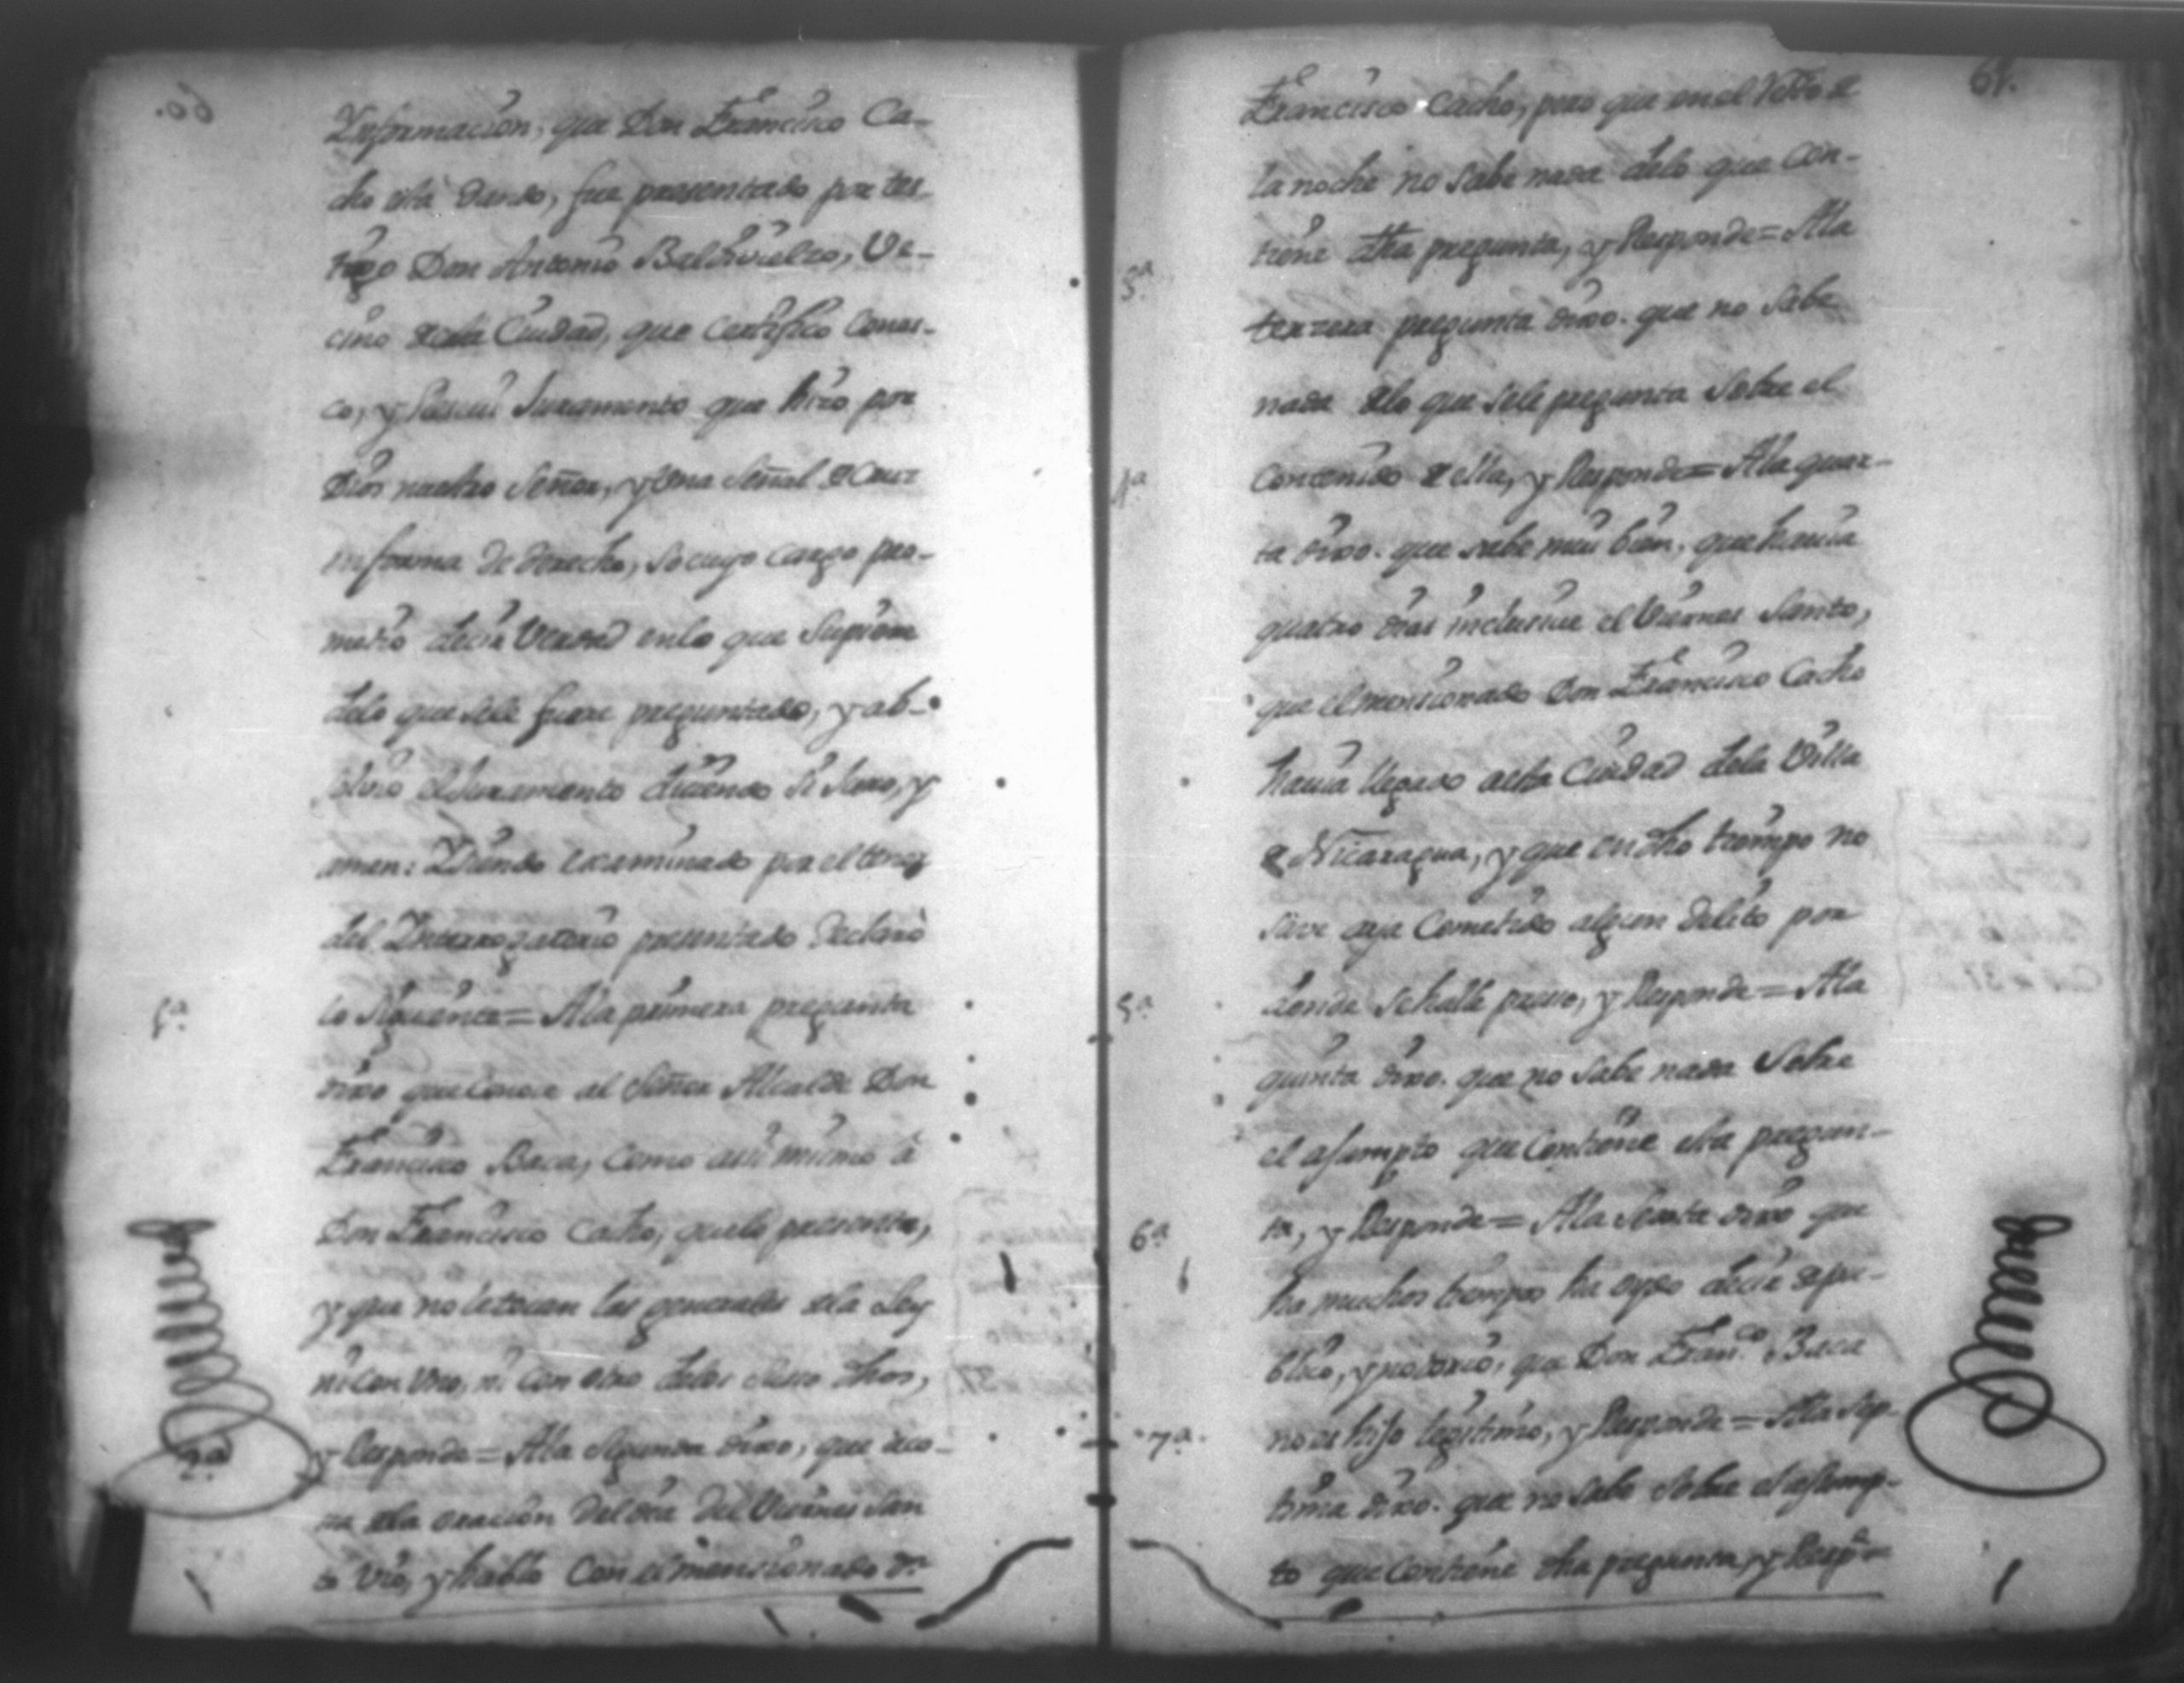 Ynformacion, que Don Francisco Ca-
cho está dando, fue presentado por tes-
tigo Don Antonio Baldivielzo, Ve-
cino de esta Ciudad, que certifico conos-
co, y Juramento que hizo por
Dios nuestro Señor, y una Señal de Cruz
en forma de derecho, so cuyo cargo pro-
metio decir Verdad en lo que Supiere
delo que sele fuere preguntado, y ab-
solvio el Juramento diciendo si Juro, y
amen: Y siendo examinado por el tenor
del Interrogatorio presentado declaró
1ª
lo Siguiente= A la primera pregunta
dixo que Conoce al Señor Alcalde Don
Francisco Baca, como asi mismo á
Don Francisco Cacho, que le presenta,
y que no le tocan las generales de la Ley
ni con Uno, ni con otro delos suso dhos,
2ª
y Responde= A la Segunda dixo, que aco-
de la oracion del dia del Viernes San
to vio, y habló con el mencionado Dn
61.
Francisco Cacho, pero que en el resto de
la noche no sabe nada delo que con-
3ª
tiene dha pregunta, y Responde= A la
terzera pregunta dixo. que no sabe
nada de lo que sele pregunta sobre el
4ª
contenido de ella, y Responde= A la quar-
ta dixo. que sabe mui bien, que havia
quatro dias inclusive el Viernes Santo,
que el mensionado Don Francisco Cacho
havia llegado a esta Ciudad dela Villa
de Nicaragua, y que en dho tiempo no
save aya Cometido algun delito por
5ª
donde se halle preso, y Responde= A la
quinta dixo. que no sabe nada sobre
el asumpto que Contiene esta pregun-
6ª
ta, y Responde= A la Sexta dixo que
ha muchos tiempos ha oydo decir de pu-
blico, y notorio, que Don Franco Baca
7ª
no es hijo legitimo, y Responde= A la sep-
tima dixo. que no sabe sobre el asump-
to que contiene dha pregunta, y Respde=